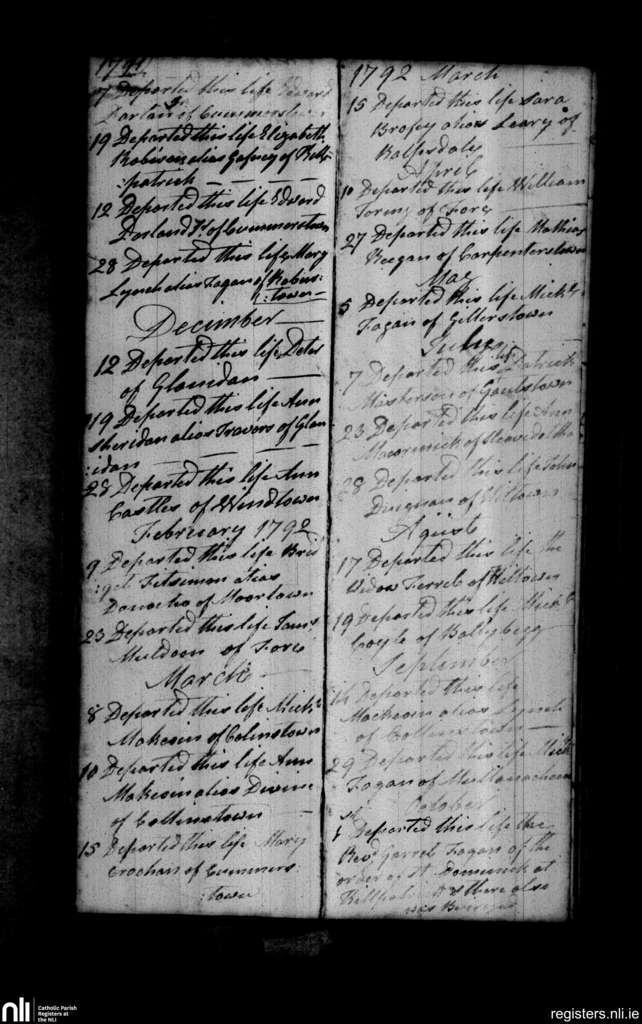 1791
17 Departed this life Edward
Darlan of Cummerstown
19 Departed this life Elizabeth
Robinson alias Gafney of Kill=
:patrick
12 Departed this life Edward
Dorland Jr. of Cummerstown
28 Departed this life Mary
Lynch alias Fagan of Robins:
:town
December
12 Departed this life Peter
of Glanidan
19 Departed this life Ann
Sheridan alias Travors of Glan
:idan
28 Departed this life Ann
Castles of Windtown
Febrerary 1792
9 Departed this life Brid
:get Fitsimon alias
Donocho of Moortown
23 Departed this life Jams
Muldoon of Fore
March
8 Departed this life Mickl
Makeoin of Colinstown
10 Departed this life Ann
Makeoin alias Divine
of Collinstown
15 Departed this life Mary
Crochan of Cummers
:town
1792 March
15 Departed this life Sara
Brofey alias Leary of
Ballsdaly
Aprel
10 Departed this life William
of Fore
27 Departed this life Mathias
Keegan of Carpenterstown
May
5 Departed this life Mickl
Fagan of Gillerstown
July
7 Departed this life Patrick
Masterson of Gaulstown
23 Departed this life Ann
Macormick of
28 Departed this life John
Dingnan of Hiltown
Agust
17 Departed this life the
Widow Ferrel of Hilltown
19 Departed this life Mickl
Coyle of Ballybegg
September
14 Departed this life
Mackeoin alias Lynch
of Collinstown
29 Departed this life Mickl
Fagan of Mullanacheran
October
1st Departed this life the
Revd Garret Fagan of the
order of St Dominick at
Killpat: & there also
was Buried
nli
Catholic Parish
Registers at
the NLI
registers.nli.ie